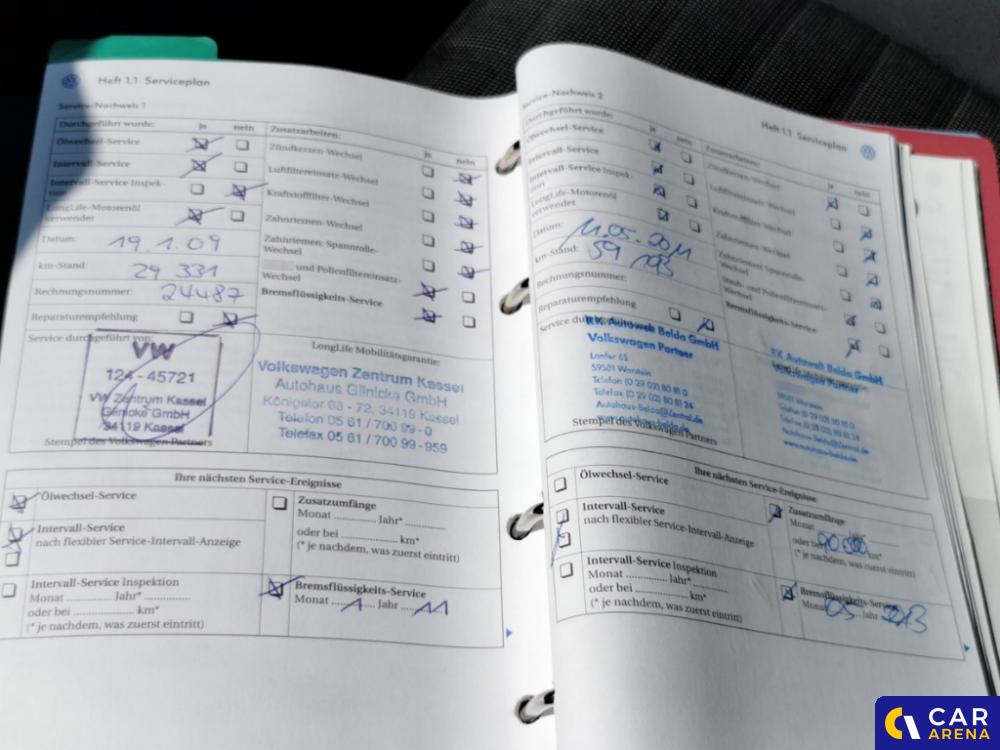 Heft 1.1 Serviceplan
Service-Nachweis 1
Durchgeführt wurde: ja nein
Ölwechsel-Service
Intervall-Service
Intervall-Service Inspek-
tion
LongLife-Motorenöl
verwendet
Datum: 19.1.09
km-Stand: 29 331
Rechnungsnummer: 24487
Reparaturempfehlung
Zusatzarbeiten: ja nein
Zündkerzen-Wechsel
Luftfiltereinsatz-Wechsel
Kraftstofffilter-Wechsel
Zahnriemen-Wechsel
Zahnriemen: Spannrolle-
Wechsel
und Pollenfiltereinsatz-
Wechsel
Bremsflüssigkeits-Service
Service durchgeführt von:
VW
124 - 45721
VW Zentrum Kassel
Glinicke GmbH
34119 Kassel
Stempel des Volkswagen Partners
LongLife Mobilitätsgarantie:
Volkswagen Zentrum Kassel
Autohaus Glinicke GmbH
Königstor 68 - 72, 34119 Kassel
Telefon 05 61 / 700 99 - 0
Telefax 05 61 / 700 99 - 959
Ihre nächsten Service-Ereignisse
Ölwechsel-Service
Intervall-Service
nach flexibler Service-Intervall-Anzeige
Intervall-Service Inspektion
Monat ............ Jahr* ............
oder bei ............ km*
(* je nachdem, was zuerst eintritt)
Zusatzumfänge
Monat ............ Jahr* ............
oder bei ............ km*
(* je nachdem, was zuerst eintritt)
Bremsflüssigkeits-Service
Monat 1 Jahr 11
Service-Nachweis 2
Heft 1.1 Serviceplan
Durchgeführt wurde: ja nein
Ölwechsel-Service
Intervall-Service
Intervall-Service Inspek-
tion
LongLife-Motorenöl
verwendet
Datum: 11.05.2011
km-Stand: 59 193
Rechnungsnummer:
Reparaturempfehlung
Zusatzarbeiten: ja nein
Zündkerzen-Wechsel
Luftfiltereinsatz-Wechsel
Kraftstofffilter-Wechsel
Zahnriemen-Wechsel
Zahnriemen: Spannrolle-
Wechsel
Staub- und Pollenfiltereinsatz-
Wechsel
Bremsflüssigkeits-Service
RK Autowelt Belda GmbH
Volkswagen Partner
Lanfer 65
59581 Warstein
Telefon (0 29 02) 80 81 0
Telefax (0 29 02) 80 81 26
Autohaus-Belda@Zentral.de
www.autohaus-belda.de
Stempel des Volkswagen Partners
RK Autowelt Belda GmbH
Volkswagen Partner
59581 Warstein
Telefon (0 29 02) 80 81 0
Telefax (0 29 02) 80 81 26
Autohaus-Belda@Zentral.de
www.autohaus-belda.de
Ihre nächsten Service-Ereignisse
Ölwechsel-Service
Intervall-Service
nach flexibler Service-Intervall-Anzeige
Intervall-Service Inspektion
Monat ............ Jahr* ............
oder bei ............ km*
(* je nachdem, was zuerst eintritt)
Zusatzumfänge
Monat Jahr*
oder bei 90 000 km*
(* je nachdem, was zuerst eintritt)
Bremsflüssigkeits-Service
Monat 05 Jahr 2013
CAR
ARENA